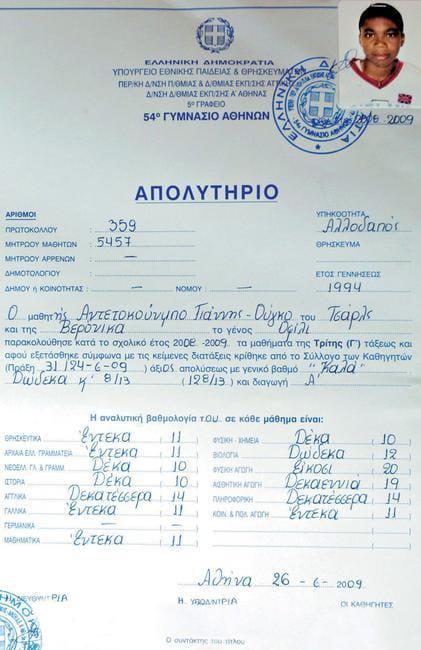 ΕΛΛΗΝΙΚΗ ΔΗΜΟΚΡΑΤΙΑ
ΥΠΟΥΡΓΕΙΟ ΕΘΝΙΚΗΣ ΠΑΙΔΕΙΑΣ & ΘΡΗΣΚΕΥΜΑΤΩΝ
ΠΕΡ/ΚΗ Δ/ΝΣΗ Π/ΘΜΙΑΣ & Δ/ΘΜΙΑΣ ΕΚΠ/ΣΗΣ
Δ/ΝΣΗ Δ/ΘΜΙΑΣ ΕΚΠ/ΣΗΣ Α΄ ΑΘΗΝΑΣ
5º ΓΡΑΦΕΙΟ
54º ΓΥΜΝΑΣΙΟ ΑΘΗΝΩΝ
54º ΓΥΜΝΑΣΙΟ ΑΘΗΝΩΝ
2008-2009
ΑΠΟΛΥΤΗΡΙΟ
ΑΡΙΘΜΟΙ
ΠΡΩΤΟΚΟΛΛΟΥ : 359
ΜΗΤΡΩΟΥ ΜΑΘΗΤΩΝ : 5457
ΜΗΤΡΩΟΥ ΑΡΡΕΝΩΝ : —
ΔΗΜΟΤΟΛΟΓΙΟΥ :
ΔΗΜΟΥ ή ΚΟΙΝΟΤΗΤΑΣ : — ΝΟΜΟΥ : —
ΥΠΗΚΟΟΤΗΤΑ
Αλλοδαπός
ΘΡΗΣΚΕΥΜΑ
ΕΤΟΣ ΓΕΝΝΗΣΕΩΣ
1994
Ο μαθητής Αντετοκούνμπο Γιάννης-Ούγκο του Τσάρλς
και της Βερόνικα το γένος Οφίλι
παρακολούθησε κατά το σχολικό έτος 2008-2009. τα μαθήματα της Τρίτης (Γ΄) τάξεως και
αφού εξετάσθηκε σύμφωνα με τις κείμενες διατάξεις κρίθηκε από το Σύλλογο των Καθηγητών
(Πράξη 31/24-6-09) άξιος απολύσεως με γενικό βαθμό "Καλά"
Δώδεκα κ' 8/13 (12 8/13) και διαγωγή Α'
Η αναλυτική βαθμολογία του σε κάθε μάθημα είναι:
ΘΡΗΣΚΕΥΤΙΚΑ Έντεκα ( 11 )
ΑΡΧΑΙΑ ΕΛΛ. ΓΡΑΜΜΑΤΕΙΑ Έντεκα ( 11 )
ΝΕΟΕΛΛ. ΓΛ & ΓΡΑΜΜ. Δέκα ( 10 )
ΙΣΤΟΡΙΑ Δέκα ( 10 )
ΑΓΓΛΙΚΑ Δεκατέσσερα ( 14 )
ΓΑΛΛΙΚΑ Έντεκα ( 11 )
ΓΕΡΜΑΝΙΚΑ — ( — )
ΜΑΘΗΜΑΤΙΚΑ Έντεκα ( 11 )
ΦΥΣΙΚΗ - ΧΗΜΕΙΑ Δέκα ( 10 )
ΒΙΟΛΟΓΙΑ Δώδεκα ( 12 )
ΦΥΣΙΚΗ ΑΓΩΓΗ Είκοσι ( 20 )
ΑΙΣΘΗΤΙΚΗ ΑΓΩΓΗ Δεκαεννιά ( 19 )
ΠΛΗΡΟΦΟΡΙΚΗ Δεκατέσσερα ( 14 )
ΚΟΙΝ. & ΠΟΛ. ΑΓΩΓΗ Έντεκα ( 11 )
Αθήνα 26 - 6 - 2009
Η ΥΠΟΔ/ΝΤΡΙΑ
ΟΙ ΚΑΘΗΓΗΤΕΣ
Ο συντάκτης του τίτλου